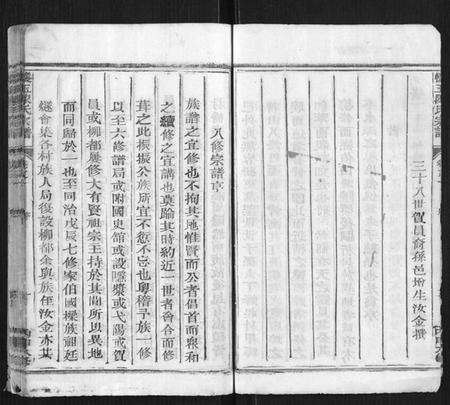 三十八世賀員裔孫邑增生汝金撰
八修宗譜序
族譜之宜修也不拘其地惟賢而公者倡首而衆和
之續修之宜講也莫踰其時約近一世者會合而修
葺之此振振公族所宜不愆不忘也粵稽予族一修
以至六修譜局或附國史館或設漿或弋陽或賀
員或柳都屢修大有賢祖宗主持於其間所以異地
而同歸於一也至同治戊辰七修家伯國樑族祖廷
會集各村族人局復設柳都余與族侄汝金亦其